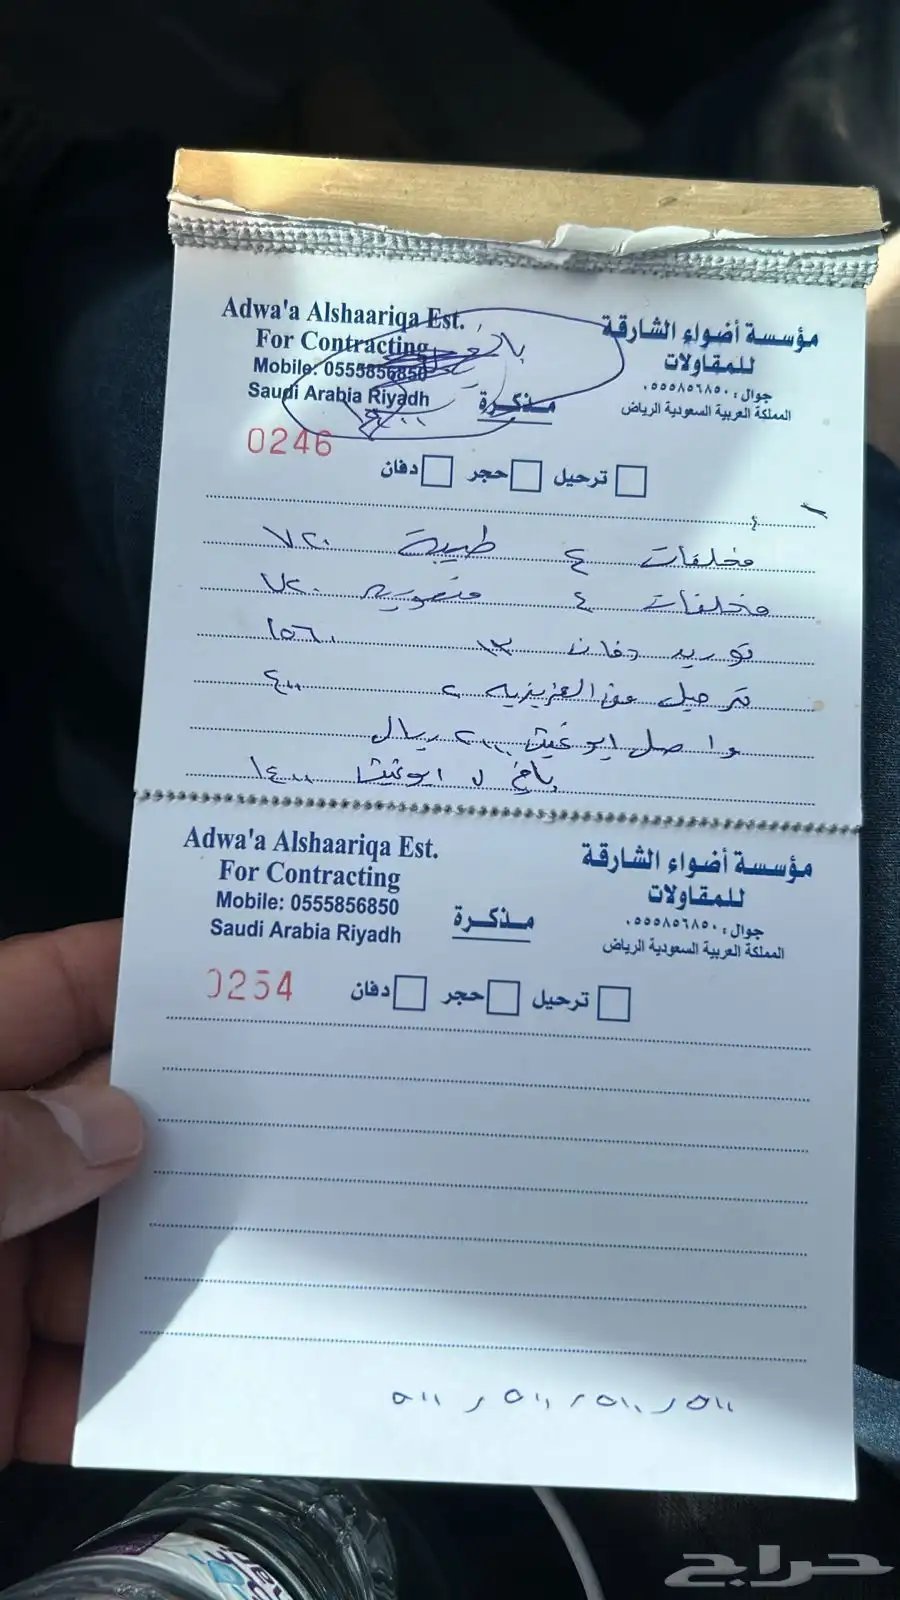 Adwa'a Alshaariqa Est.
For Contracting
Mobile: 0555856850
Saudi Arabia Riyadh
مؤسسة أضواء الشارقة
للمقاولات
جوال: ٠٥٥٥٨٥٦٨٥٠
المملكة العربية السعودية الرياض
مذكرة
0246
ترحيل حجر دفان
مخلفات ٤ طيبة ٧٢٠
مخلفات ٤ منصوريه ٧٢٠
توريد دفان ١٣ ١٥٦٠
ترحيل موز العزيزيه ٢ ٤٠٠
واصل ابو غيث ٢٠٠٠ ريال
باقي ل ابو غيث ١٤٠٠
Adwa'a Alshaariqa Est.
For Contracting
Mobile: 0555856850
Saudi Arabia Riyadh
مؤسسة أضواء الشارقة
للمقاولات
جوال: ٠٥٥٥٨٥٦٨٥٠
المملكة العربية السعودية الرياض
مذكرة
0254
ترحيل حجر دفان
حراج